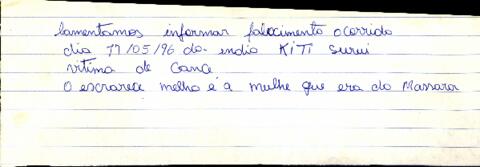 lamentamos informar falecimento ocorrido
dia 17/05/96 do indio KiTi Surui
vitima de Cance
O escrarece melho é a mulhe que era do Massaror